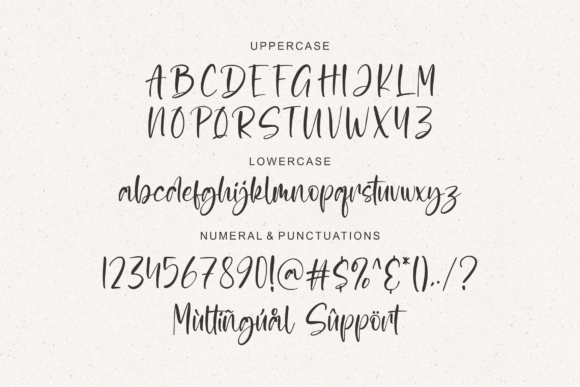 UPPERCASE
ABCDEFGHIJKLM
NOPQRSTUVWXYZ
LOWERCASE
abcdefghijklmnopqrstuvwxyz
NUMERAL & PUNCTUATIONS
1234567890!@#$%^&*()../?
Mùltiñgúål Sûppört